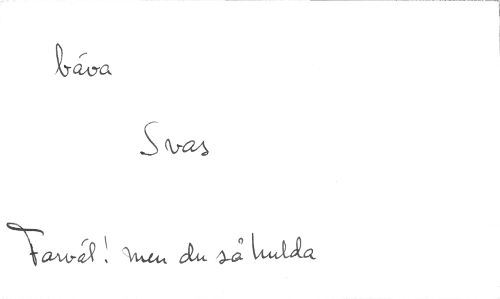 båva
Svas
Farväl! men du så hulda